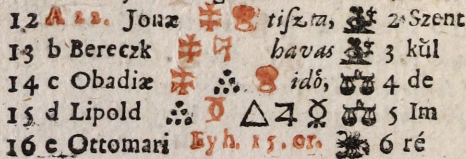 12 A 22. Jonæ tiſzta, 2 Szent
13 b Bereczk havas 3 kűl
14 c Obadiæ idő, 4 de
15 d Lipold △ ♃ ☿ 5 Im
16 e Ottomari Eyh. 15. or. 6 ré